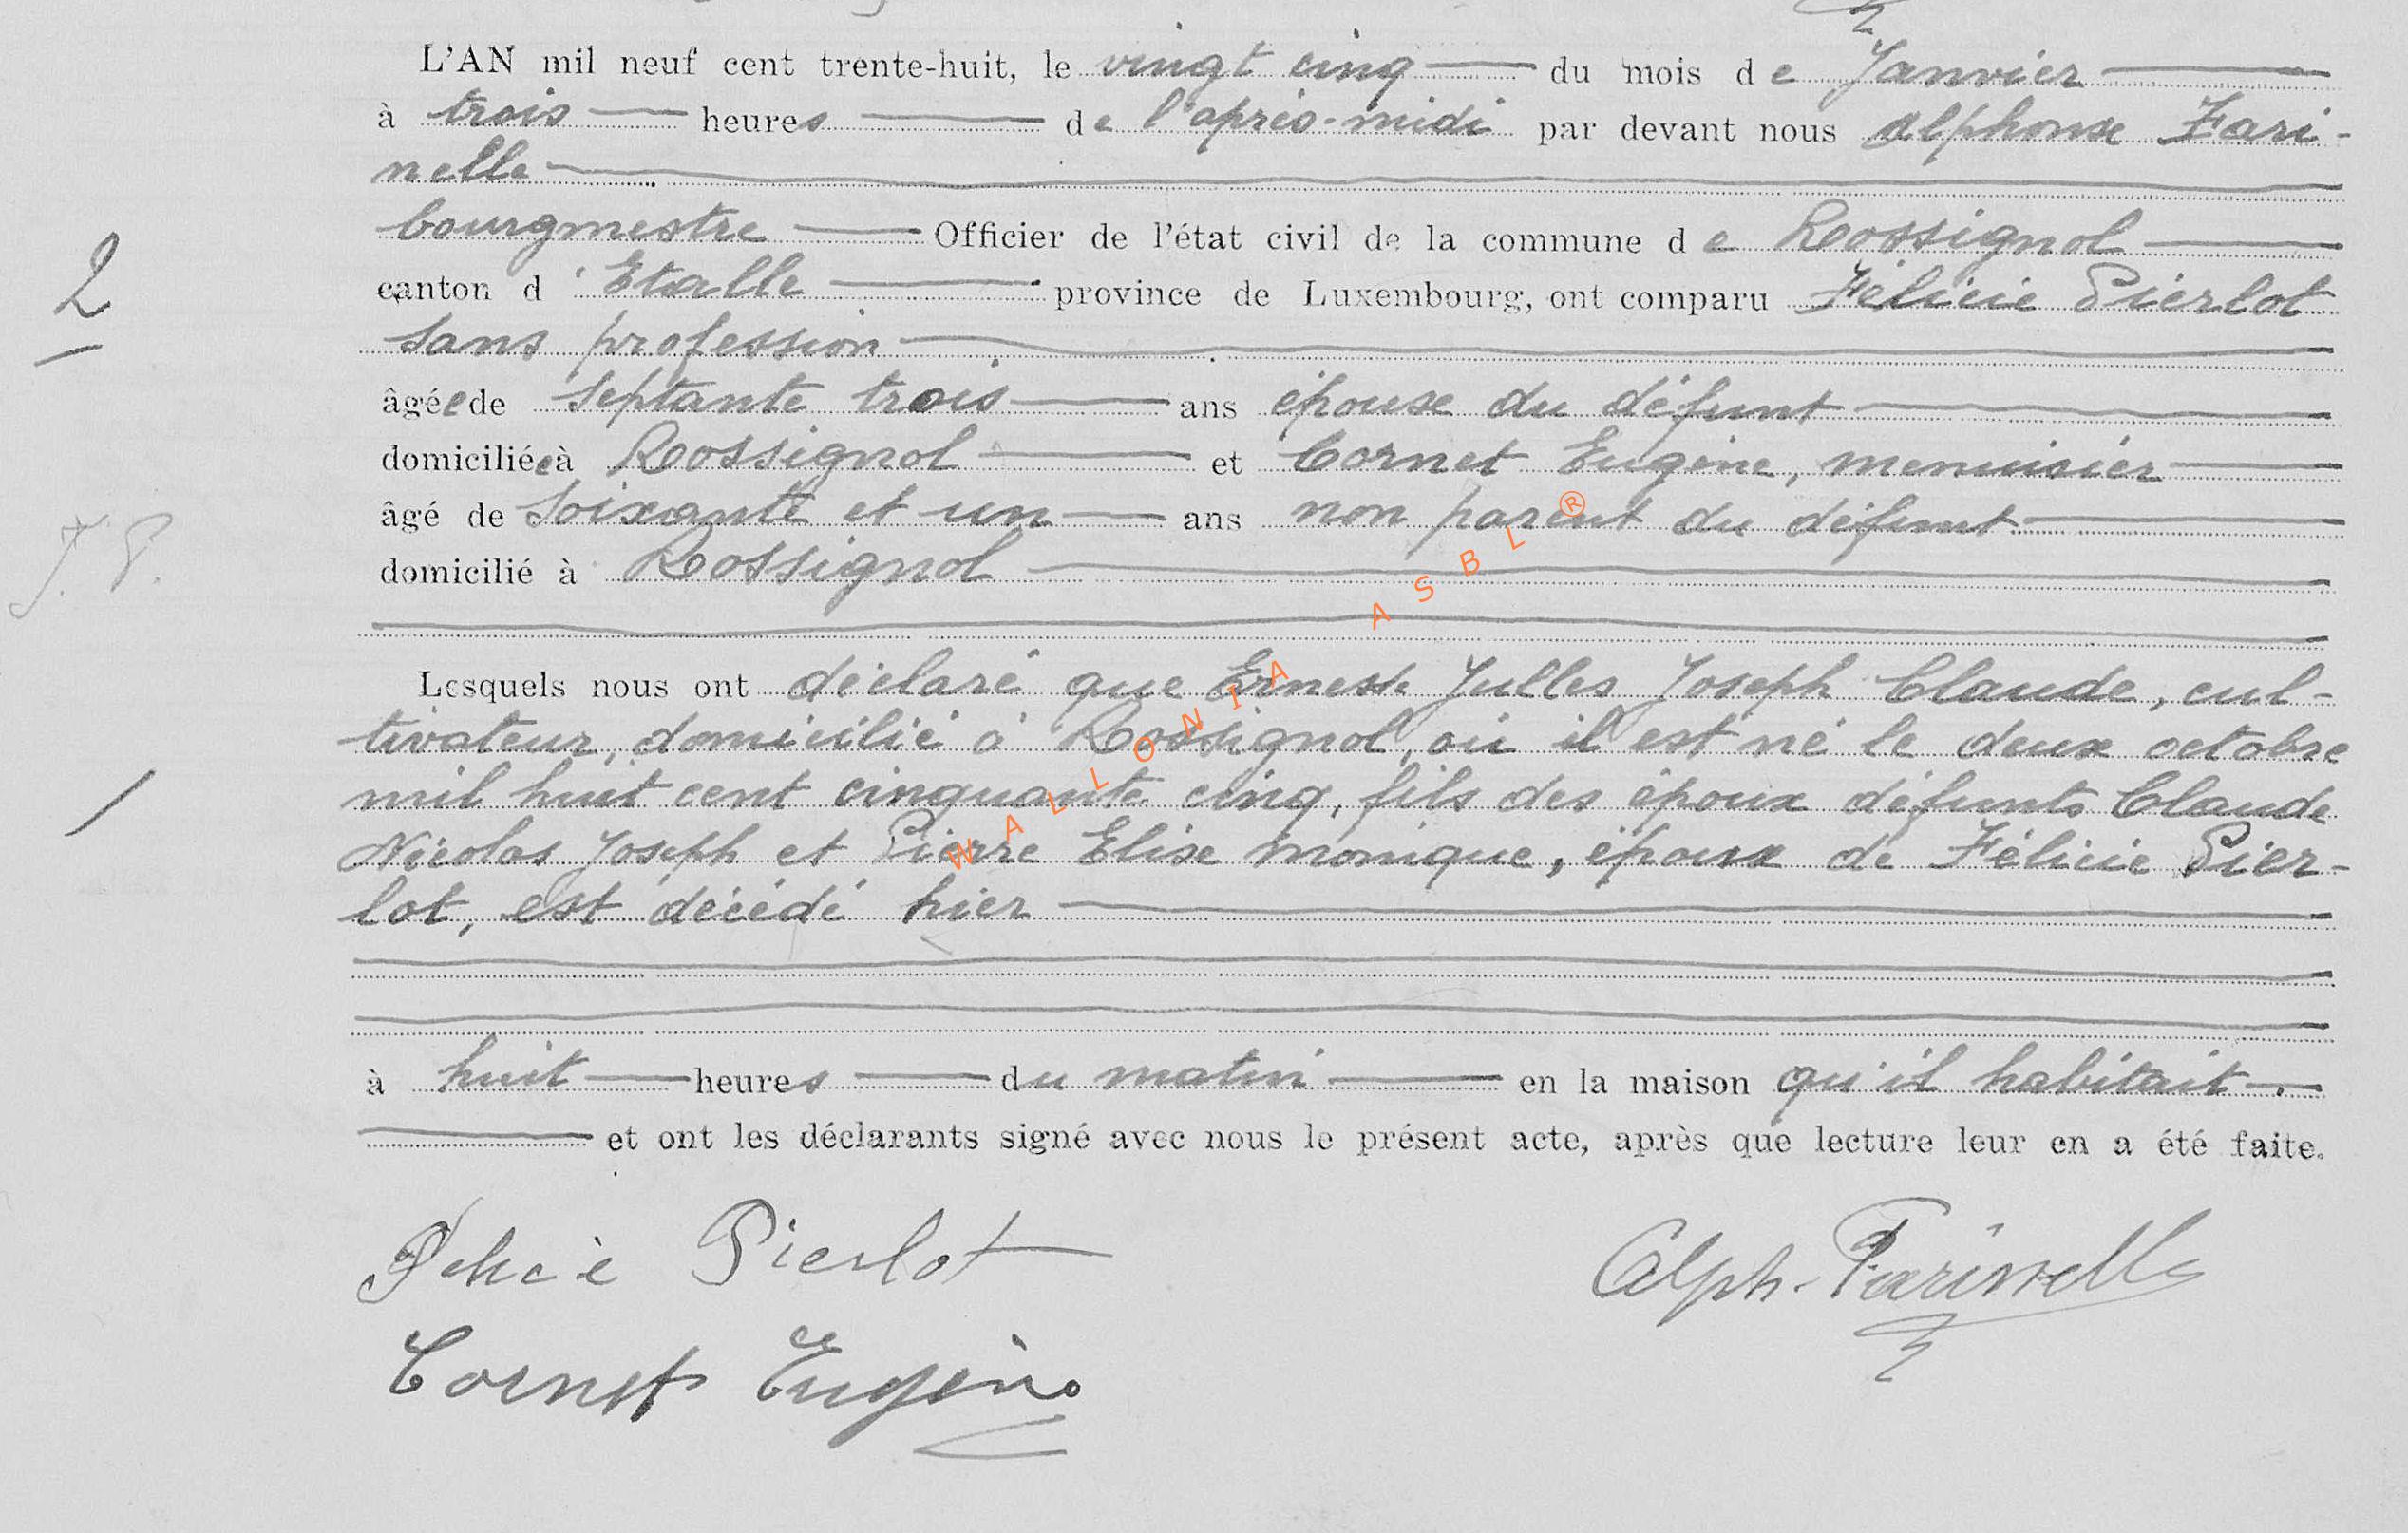 L'AN mil neuf cent trente-huit, le vingt cinq du mois de Janvier
à trois heures de l'après-midi par devant nous Alphonse Fari-
nelle
bourgmestre Officier de l'état civil de la commune de Rossignol
canton d'Etalle province de Luxembourg, ont comparu Félicie Pierlot
sans profession
âgée de septante trois ans épouse du défunt
domiciliée à Rossignol et Cornet Eugène, menuisier
2
âgé de soixante et un ans non parent du défunt
domicilié à Rossignol
J. P.
Lesquels nous ont déclaré que Ernest Julles Joseph Claude, cul-
tivateur, domicilié à Rossignol, où il est né le deux octobre
mil huit cent cinquante cinq, fils des époux défunts Claude
Nicolas Joseph et Pierre Elise Monique, époux de Félicie Pier-
lot, est décédé hier
à huit heures du matin en la maison qu'il habitait
et ont les déclarants signé avec nous le présent acte, après que lecture leur en a été faite.
Félicie Pierlot
Alph. Farinelle
Cornet Eugène
WALLONIA ASBL ®